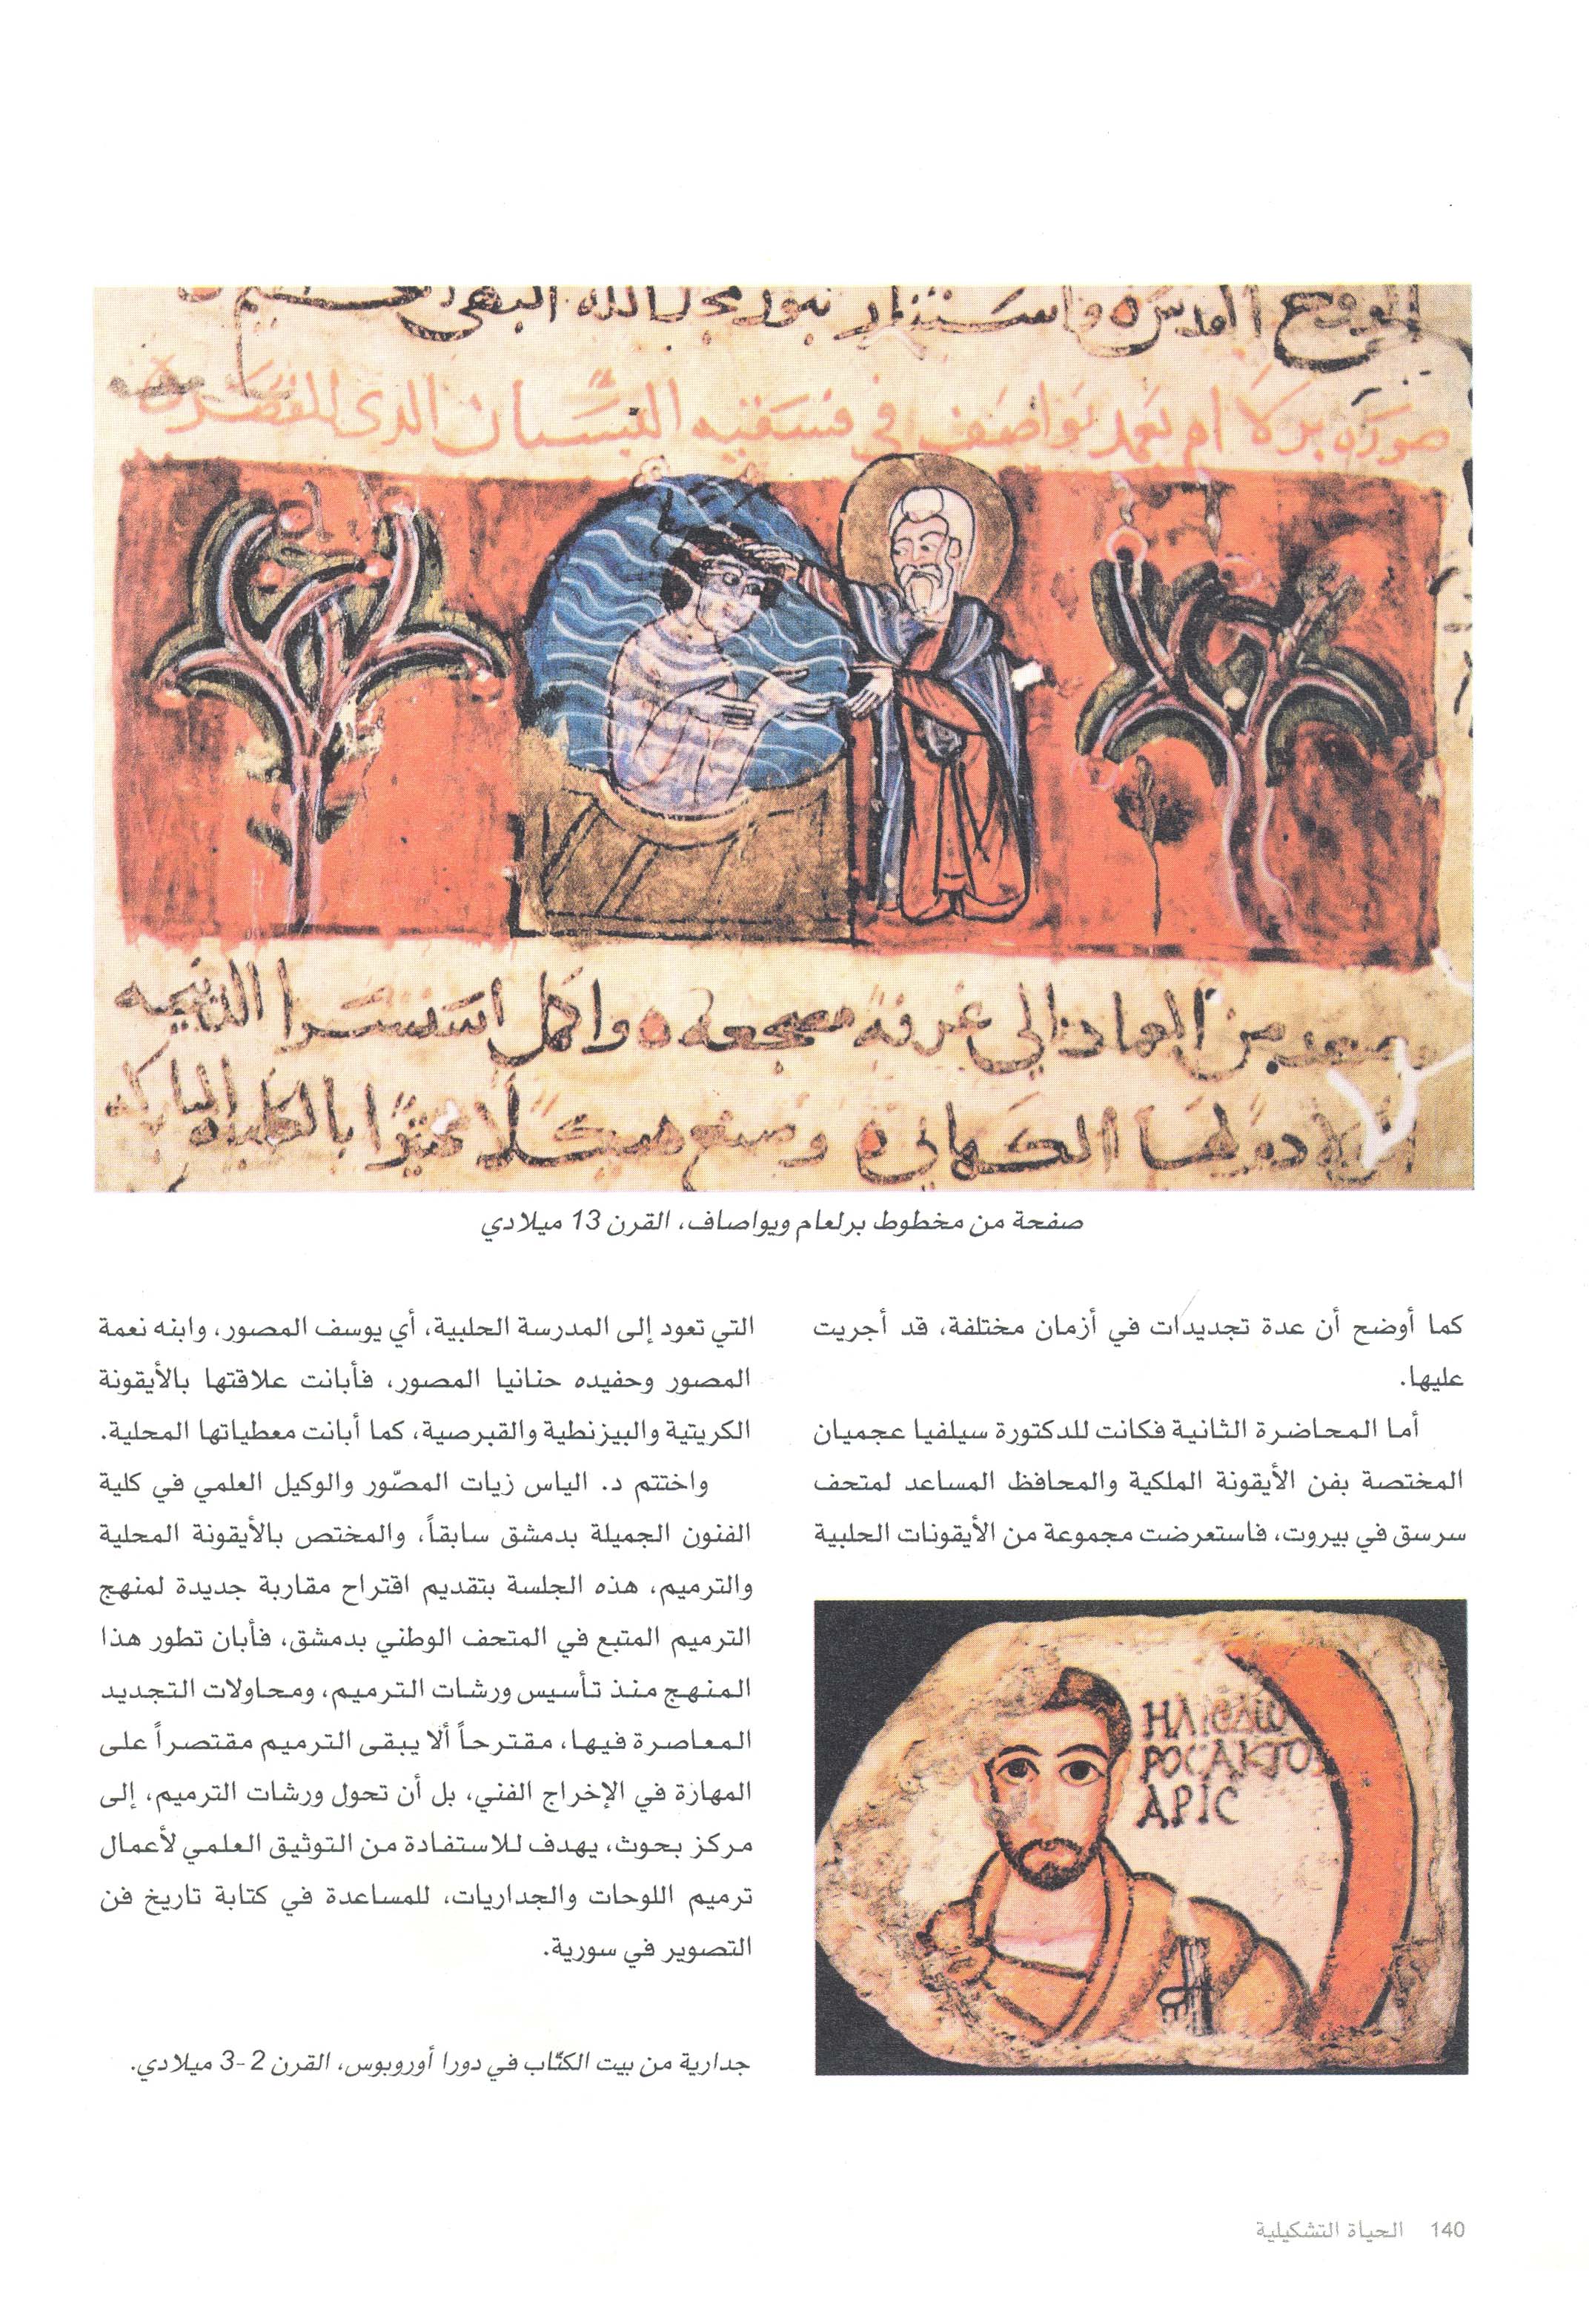 صورة برلاام يعمد يواصف في فسقيه البستان الدى للقصر
وصعد من المعاد الي غرفة مضجعه واكمل
وصنع هيكلا
صفحة من مخطوط برلعام ويواصاف، القرن 13 ميلادي
كما أوضح أن عدة تجديدات في أزمان مختلفة، قد أجريت
عليها.
أما المحاضرة الثانية فكانت للدكتورة سيلفيا عجميان
المختصة بفن الأيقونة الملكية والمحافظ المساعد لمتحف
سرسق في بيروت، فاستعرضت مجموعة من الأيقونات الحلبية
ΗΛΙΟΔΩ
ΡΟCΑΚΤΟ
ΑΡΙC
التي تعود إلى المدرسة الحلبية، أي يوسف المصور، وابنه نعمة
المصور وحفيده حنانيا المصور، فأبانت علاقتها بالأيقونة
الكريتية والبيزنطية والقبرصية، كما أبانت معطياتها المحلية.
واختتم د. الياس زيات المصّور والوكيل العلمي في كلية
الفنون الجميلة بدمشق سابقاً، والمختص بالأيقونة المحلية
والترميم، هذه الجلسة بتقديم اقتراح مقاربة جديدة لمنهج
الترميم المتبع في المتحف الوطني بدمشق، فأبان تطور هذا
المنهج منذ تأسيس ورشات الترميم، ومحاولات التجديد
المعاصرة فيها، مقترحاً ألا يبقى الترميم مقتصراً على
المهارة في الإخراج الفني، بل أن تحول ورشات الترميم، إلى
مركز بحوث، يهدف للاستفادة من التوثيق العلمي لأعمال
ترميم اللوحات والجداريات، للمساعدة في كتابة تاريخ فن
التصوير في سورية.
جدارية من بيت الكتّاب في دورا أوروبوس، القرن 2-3 ميلادي.
140 الحياة التشكيلية